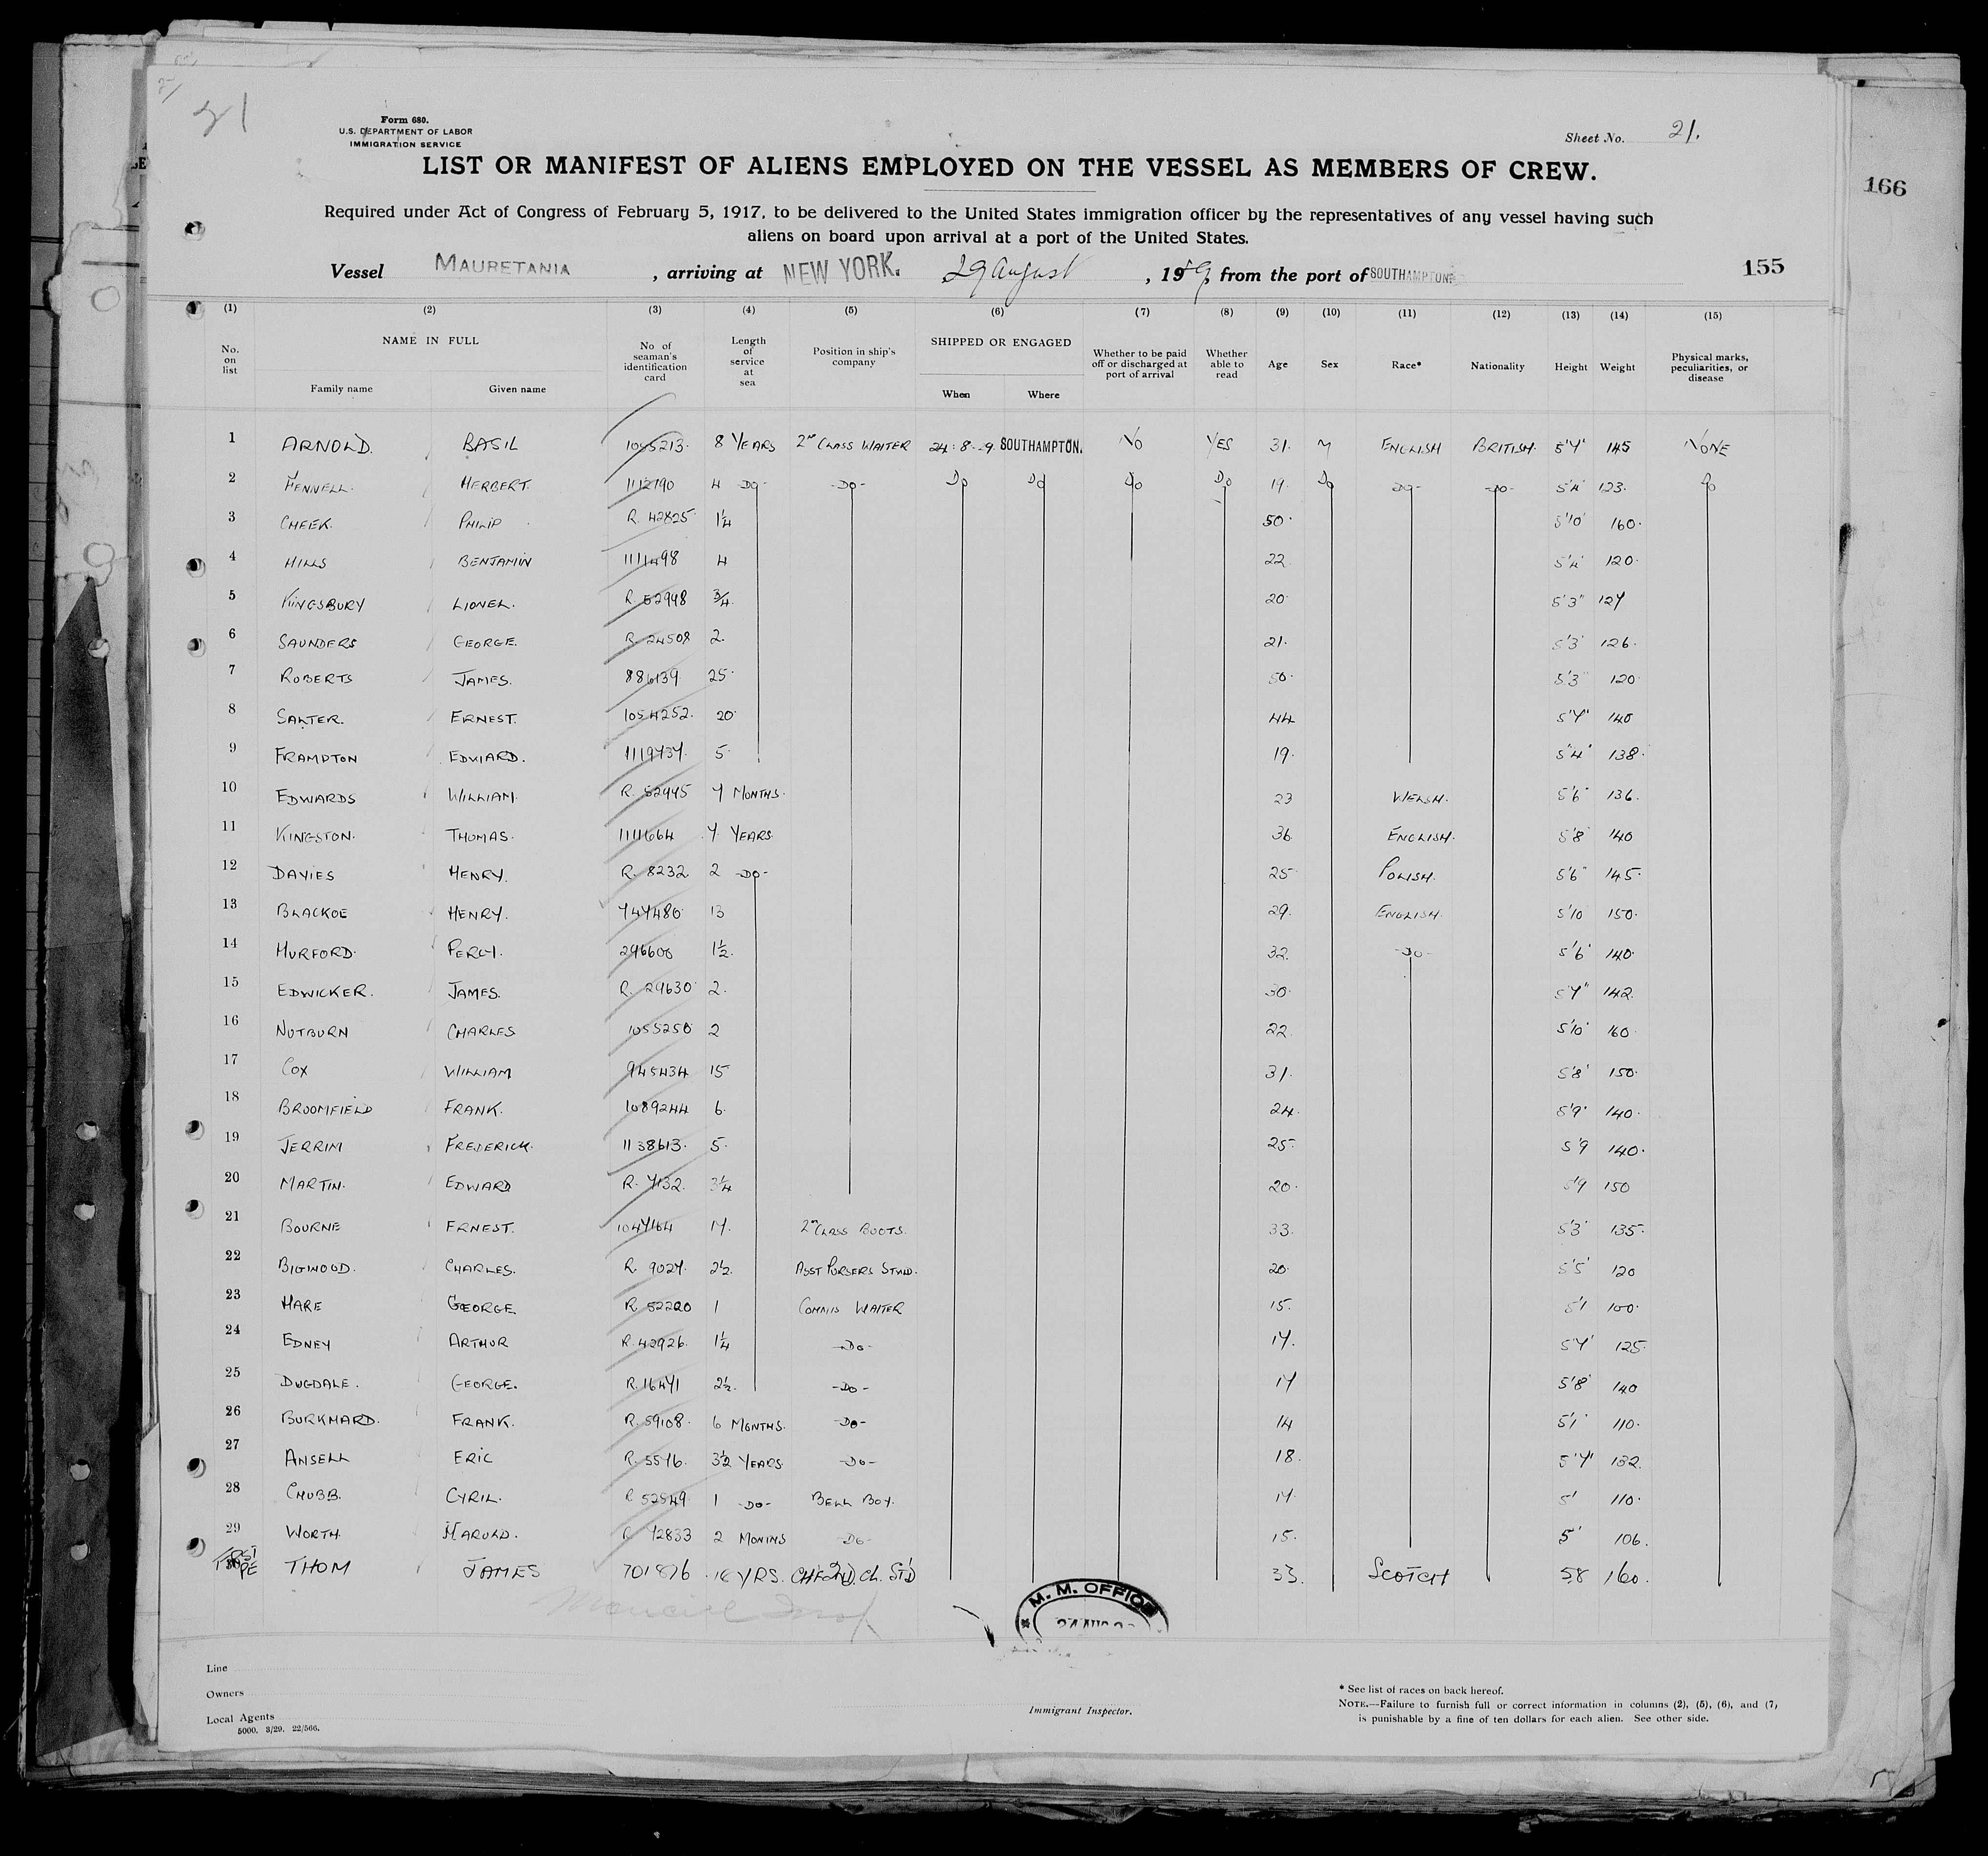 21
Form 680.
U.S. DEPARTMENT OF LABOR
IMMIGRATION SERVICE
Sheet No. 21.
LIST OR MANIFEST OF ALIENS EMPLOYED ON THE VESSEL AS MEMBERS OF CREW.
166
Required under Act of Congress of February 5, 1917, to be delivered to the United States immigration officer by the representatives of any vessel having such
aliens on board upon arrival at a port of the United States.
Vessel MAURETANIA, arriving at NEW YORK. 29 August, 1929, from the port of SOUTHAMPTON
155
(1) (2) (3) (4) (5) (6) (7) (8) (9) (10) (11) (12) (13) (14) (15)
No. on list NAME IN FULL Family name Given name No. of seaman's identification card Length of service at sea Position in ship's company SHIPPED OR ENGAGED When Where Whether to be paid off or discharged at port of arrival Whether able to read Age Sex Race* Nationality Height Weight Physical marks, peculiarities, or disease
1 ARNOLD. BASIL 1055213. 8 YEARS 2nd CLASS WAITER 24.8.29. SOUTHAMPTON. NO YES 31. M ENGLISH BRITISH. 5'7" 145 NONE
2 FENNELL. HERBERT. 1112790 4 -DO- -DO- DO DO DO DO 19. DO -DO- -DO- 5'4" 123. DO
3 CHEEK. PHILIP R. 42825 1¼ 50. 5'10" 160.
4 HILLS BENJAMIN 1111498 4 22 5'4" 120.
5 KINGSBURY LIONEL. R. 52998 ¾ 20. 5'3" 127
6 SAUNDERS GEORGE. R. 24508 2. 21. 5'3" 126.
7 ROBERTS JAMES. 886139 25. 50. 5'3" 120
8 SALTER. ERNEST. 1054252. 20. 44 5'7" 140
9 FRAMPTON EDWARD. 1119737. 5. 19. 5'4" 138.
10 EDWARDS WILLIAM. R. 52975 7 MONTHS. 23 WELSH. 5'6" 136.
11 KINGSTON. THOMAS. 1111664 7 YEARS 36 ENGLISH. 5'8" 140
12 DAVIES HENRY. R. 8232 2 -DO- 25 POLISH. 5'6" 145.
13 BLACKOE HENRY. 747480 13 29. ENGLISH. 5'10 150.
14 HURFORD. PERCY. 296600 1½. 32. -DO- 5'6" 140.
15 EDWICKER. JAMES. R. 29630 2. 30. 5'7" 142.
16 NUTBURN CHARLES 1055250 2 22. 5'10" 160
17 COX WILLIAM 945434 15 31. 5'8" 150.
18 BROOMFIELD FRANK. 1089244 6. 24. 5'9" 140.
19 JERRIM FREDERICK. 1138613. 5. 25. 5'9 140.
20 MARTIN. EDWARD R. 7132. 3¼ 20. 5'9 150
21 BOURNE ERNEST. 1047164 17. 2nd CLASS BOOTS. 33. 5'3" 135.
22 BIGWOOD. CHARLES. R. 9027. 2½. ASST PURSERS STWD. 20. 5'5" 120
23 HARE GEORGE R. 52220 1 COMMIS WAITER 15. 5'1 100.
24 EDNEY ARTHUR R. 42926. 1¼ -DO- 17. 5'7" 125.
25 DUGDALE. GEORGE. R. 16471 2½. -DO- 17 5'8" 140
26 BURKMARD. FRANK. R. 59108. 6 MONTHS. -DO- 14 5'1" 110.
27 ANSELL ERIC R. 5576. 3½ YEARS -DO- 18. 5'7" 132.
28 CHUBB. CYRIL. R 52549. 1 -DO- BELL BOY. 17. 5' 110.
29 WORTH. HAROLD. R 72833 2 MONTHS -DO- 15. 5' 106.
THOM JAMES 701876 18 YRS. CHF 2ND. CL. STD 33. SCOTCH 5.8 160.
M. M. OFFICE
Line
Owners
Local Agents
5000. 3/29. 22/566.
Immigrant Inspector.
* See list of races on back hereof.
NOTE.—Failure to furnish full or correct information in columns (2), (5), (6), and (7)
is punishable by a fine of ten dollars for each alien. See other side.